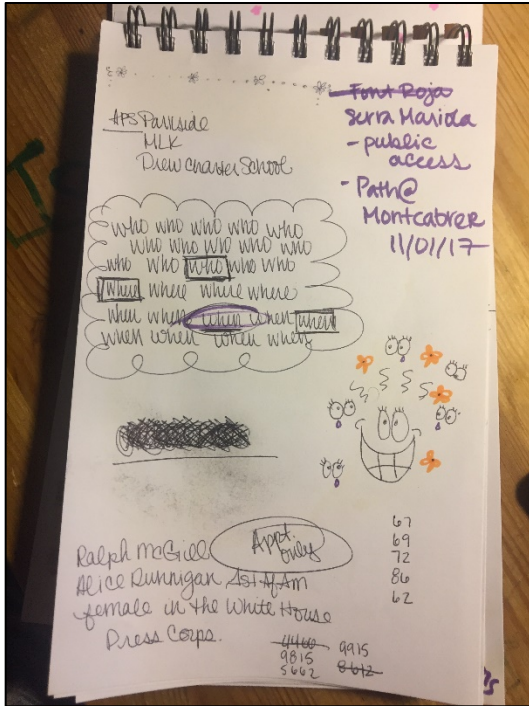 APS Parkside
MLK
Drew Charter School
Font Roja
Serra Mariola
- public
access
- Path@
Montcabrer
11/01/17
who who who who who
who who who who who
who who who who who
where where where where
when when when when when
when when when when
Ralph McGill
Appt.
only
Alice Dunnigan 1st Af Am
female in the White House
Press Corps.
67
69
72
86
62
4460
9815
5662
9915
8612